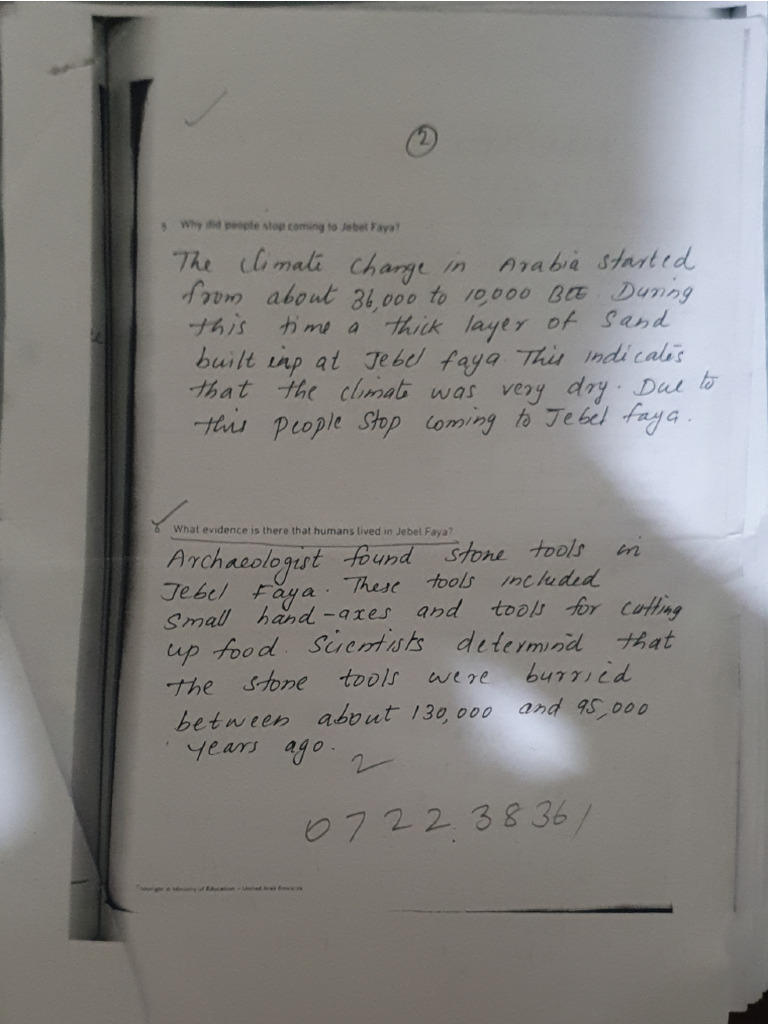 2
5 Why did people stop coming to Jebel Faya?
The climate change in Arabia started
from about 36,000 to 10,000 BCE. During
this time a thick layer of Sand
built inp at Jebel faya. This indicates
that the climate was very dry. Due to
this people stop coming to Jebel faya.
6 What evidence is there that humans lived in Jebel Faya?
Archaeologist found stone tools in
Jebel Faya. These tools included
Small hand-axes and tools for cutting
up food. Scientists determind that
the stone tools were burried
between about 130,000 and 95,000
years ago.
2
0722.38361
Copyright © Ministry of Education - United Arab Emirates